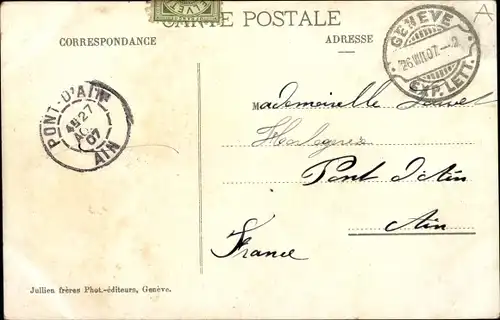 CARTE POSTALE
CORRESPONDANCE
ADRESSE
GENÈVE
26.VIII.07.—2
EXP. LETT.
A
PONT-D'AIN
27
07
AIN
Mademoiselle
Pont d'Ain
Ain
France
Jullien frères Phot.-éditeurs, Genève.